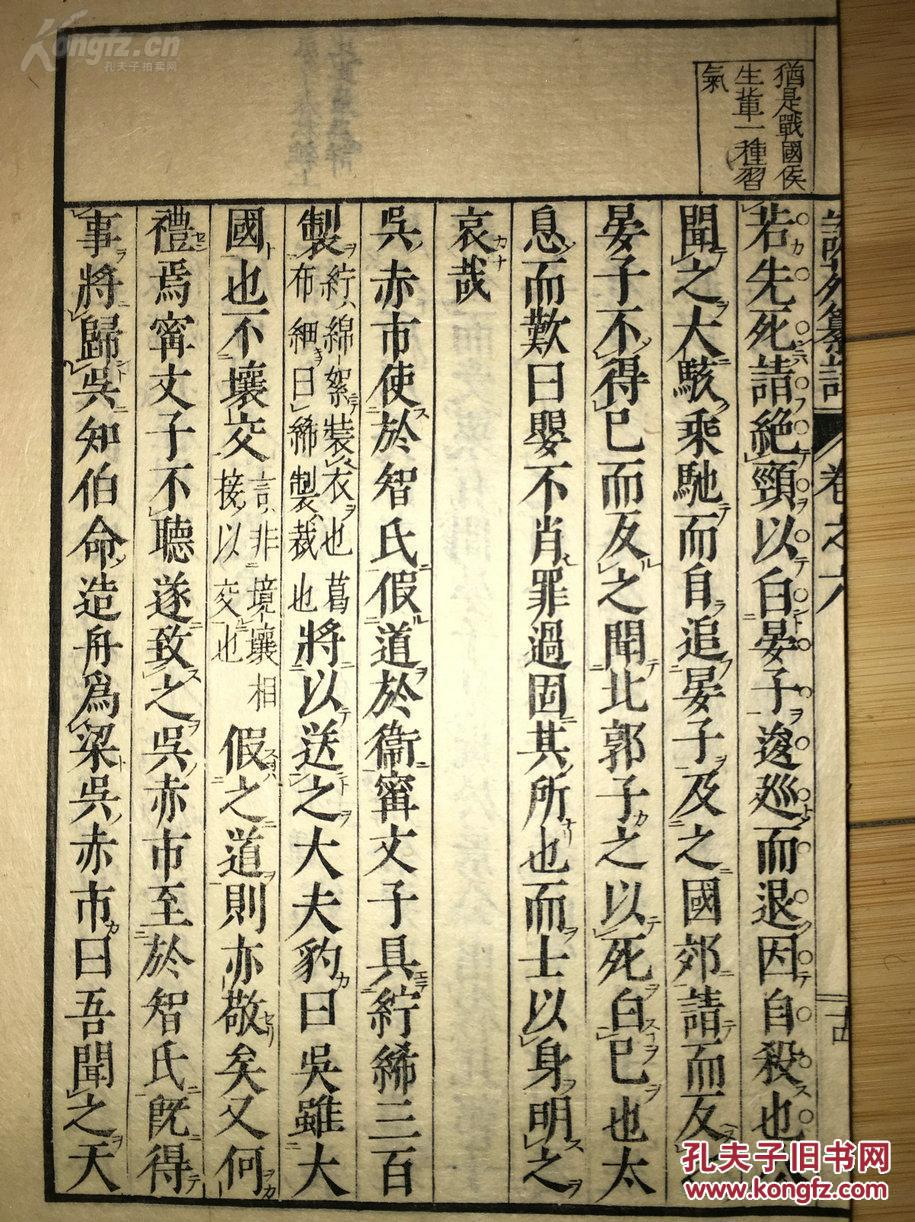 Kongfz.cn
孔夫子拍卖网
猶是戰國侯
生軰一種習
氣
卷之六
若先死請絶頸以白晏子逡巡而退因自殺也公
聞之大駭乘馳而自追晏子及之國郊請而反之
晏子不得已而反之聞北郭子之以死白己也太
息而歎曰嬰不肖罪過固其所也而士以身明之
哀哉
吳赤市使於智氏假道於衞甯文子具紵絺三百
製紵綿絮裝衣也葛布細曰絺製裁也將以送之大夫豹曰吳雖大
國也不壤交言非境壤相接以交也假之道則亦敬矣又何
禮焉甯文子不聽遂致之吳赤市至於智氏旣得
事將歸吳知伯命造舟爲梁吳赤市曰吾聞之天
孔夫子旧书网
www.kongfz.com